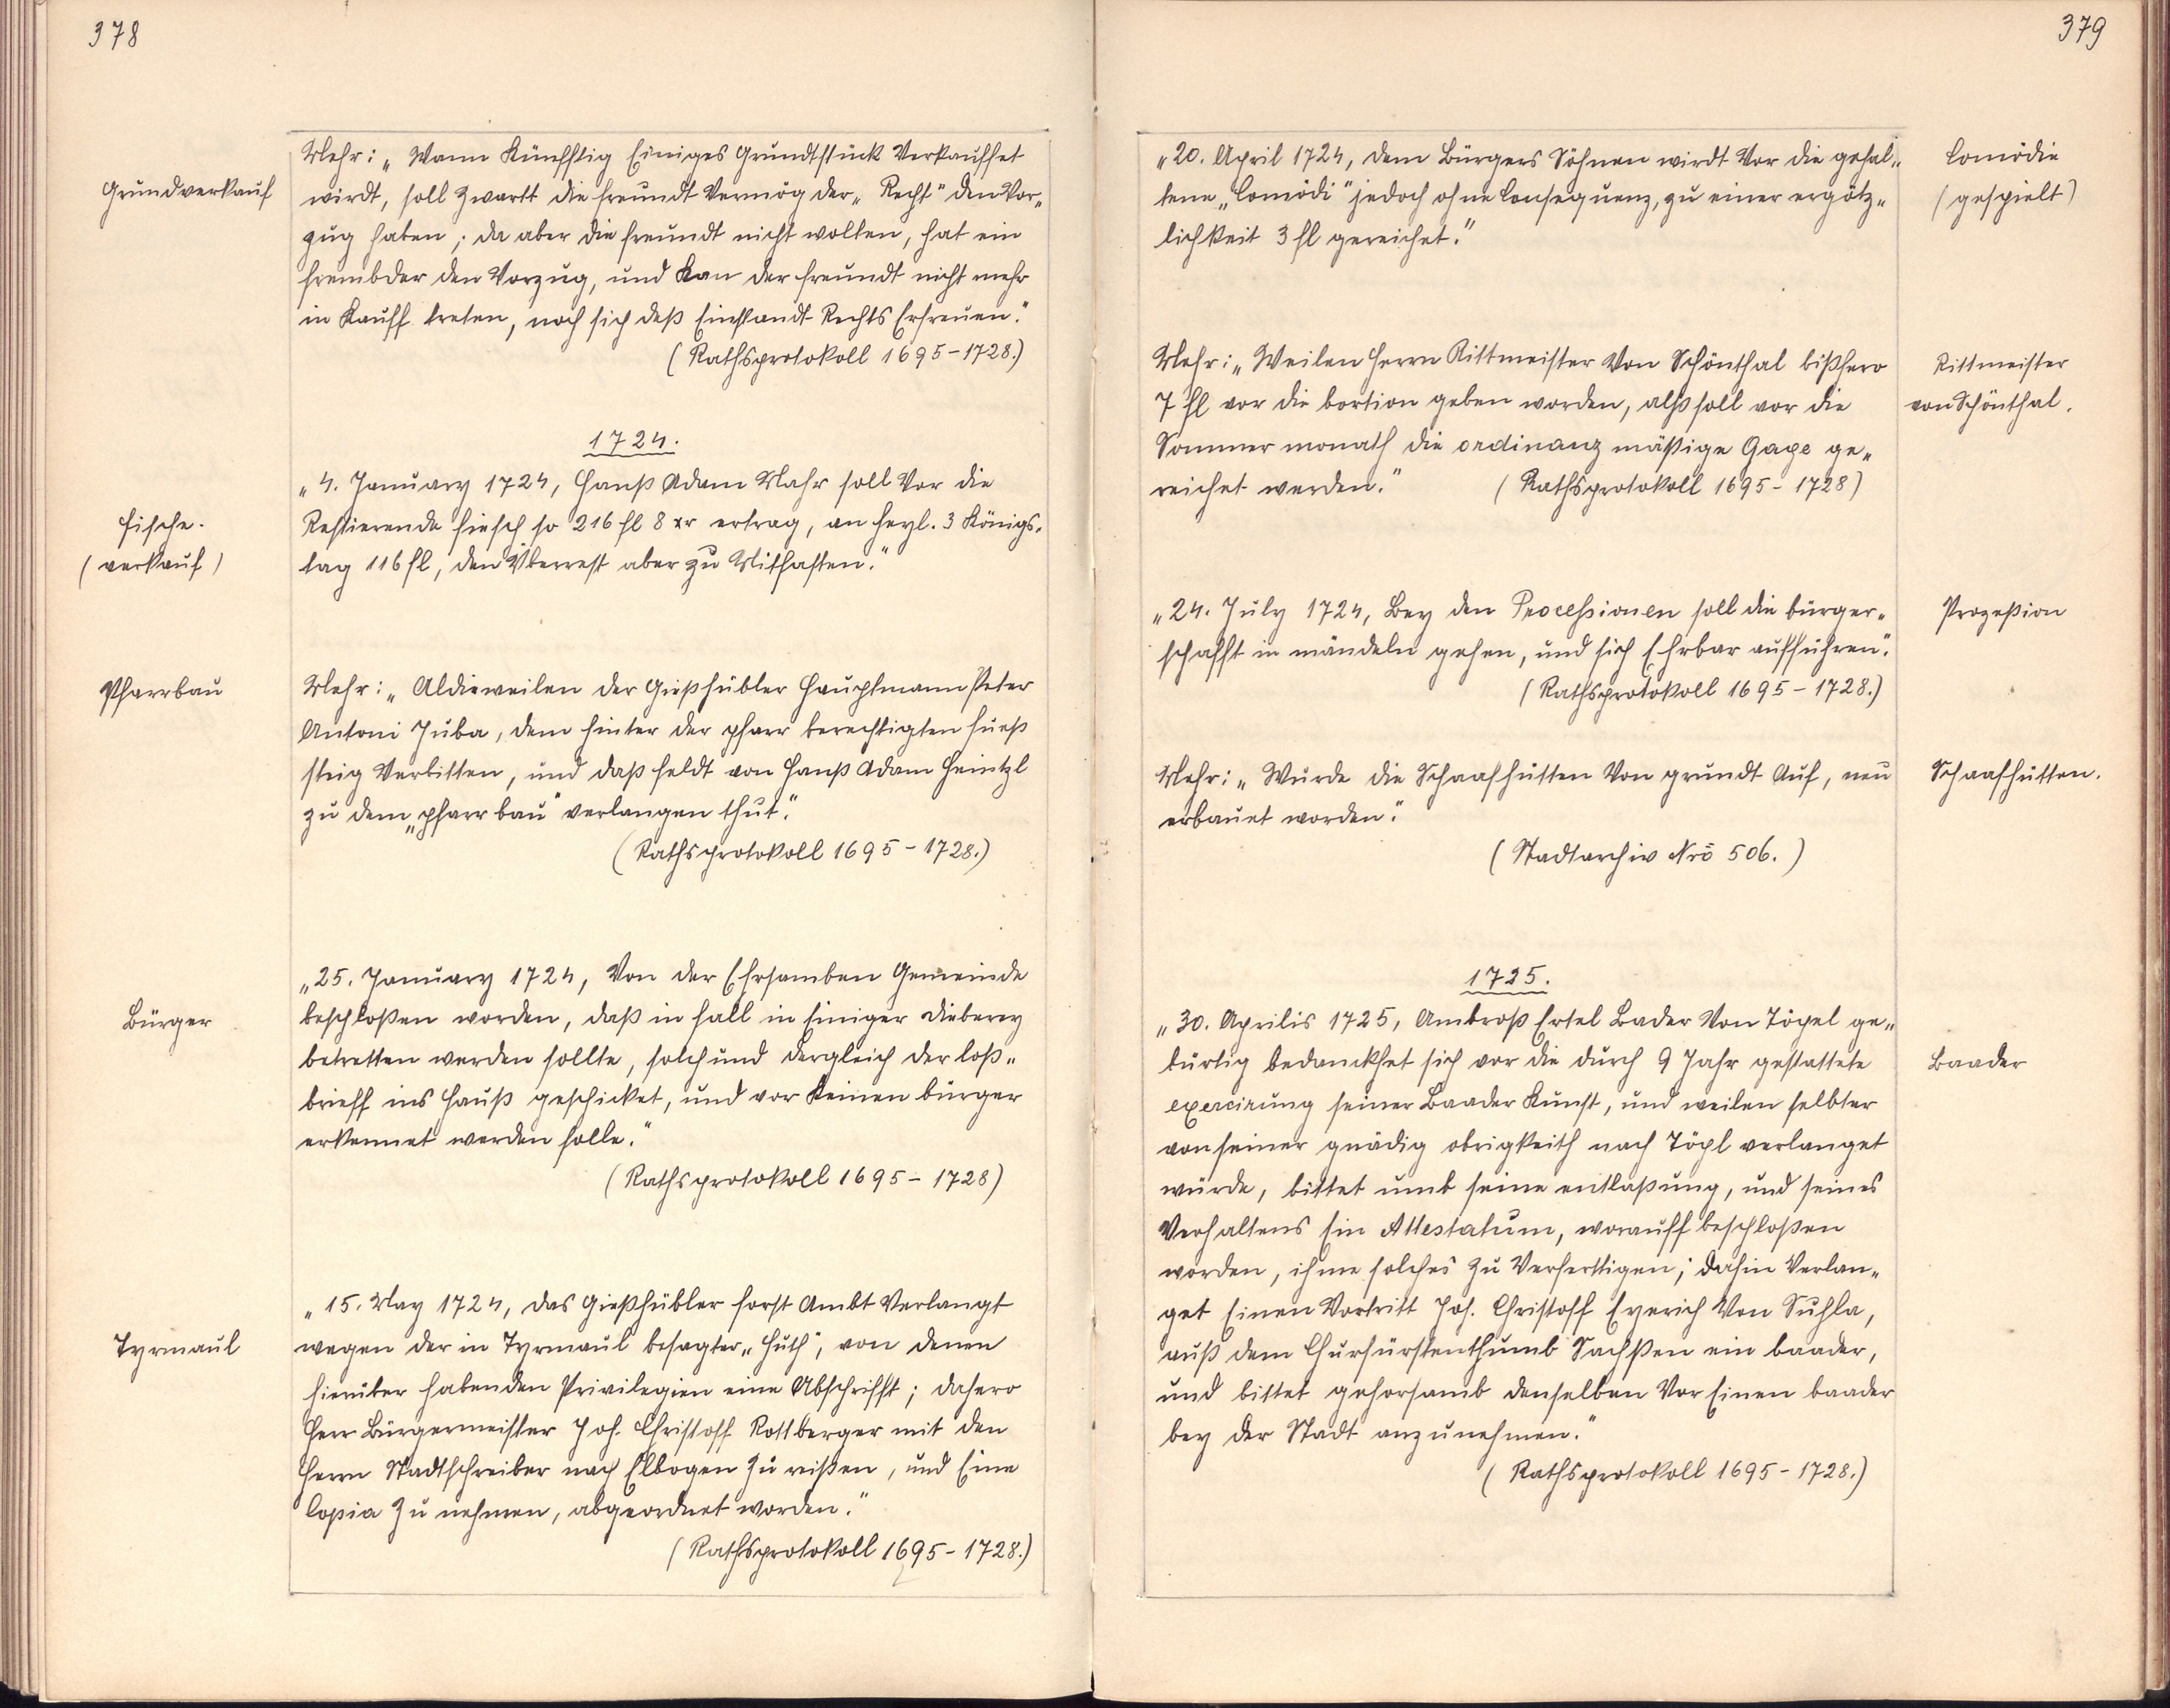 378
Mehr: „Wann Künfftig Einiges Grundtstück Verkauffet
Grundverkauf
wirdt, soll zwartt die freundt Vermög der „Recht" den Vor„
zug haben; da aber die freundt nicht wolten, hat ein
frembder den Vorzug, und Kan der freundt nicht mehr
in Kauff tretten, noch sich deß Einstandt-Rechts Erfreuen."
(Rathsprotokoll 1695-1728.)
1724.
„4. January 1724, Hanß Adam Mahr soll Vor die
Fische.
Restierende fiesch so 216 fl 8 xr ertrag, an heyl. 3 Königs„
(verkauf)
tag 116 fl, den Überrest aber zu Mitfasten."
Pfarrbau
Mehr: „Aldieweilen der Gießhübler Hauptmann Peter
Antoni Juba, dem hinter der pfarr berechtigten fueß
steig Verbitten, und daß feldt von Hanß Adam Heintzl
zu dem „pfarrbau" verlangen thut."
(Rathsprotokoll 1695-1728.)
„25. January 1724, Von der Ehrsamben Gemeinde
Bürger
beschloßen worden, daß in fall in Einiger dieberey
betretten werden sollte, solch und dergleich der loß„
brieff ins Hauß geschicket, und vor Keinen bürger
erkennet werden solle."
(Rathsprotokoll 1695-1728)
„15. May 1724, das Gießhübler forst Ambt Verlangt
Tyrmaul
wegen der in Tyrmaul besagter „Huth", von denen
hierüber habenden Privilegien eine Abschrifft; dahero
Herr Bürgermeister Joh. Christoff Rottberger mit den
Herrn Stadtschreiber nach Elbogen zu reißen, und Eine
Copia zu nehmen, abgeordnet worden."
(Rathsprotokoll 1695-1728.)
379
„20. April 1724, denn Bürgers Söhnen wirdt Vor die gehal„
Comödie
tene „Comödi" jedoch ohne Consequenz, zu einer ergötz„
(gespielt)
lichkeit 3 fl gereichet."
Mehr: „Weilen Herrn Rittmeister Von Schönthal bißhero
Rittmeister
7 fl vor die bortion geben worden, alß soll vor die
von Schönthal.
Sommer monath die ordinanz mäßige Gage ge„
reichet werden." (Rathsprotokoll 1695-1728)
„24. July 1724, Bey den Processionen soll die bürger„
Prozeßion
schafft in mändeln gehen, und sich Ehrbar aufführen."
(Rathsprotokoll 1695-1728.)
Mehr: „Wurde die Schaafhütten Von grundt Auf, neu
Schaafhütten.
erbauet worden."
(Stadtarchiv Nro 506.)
1725.
„30. Aprilis 1725, Ambroß Ertel Bader Von Töpel ge„
bürtig bedanckhet sich vor die durch 9 Jahr gestattete
Baader
exercirung seiner Baader Kunst, und weilen selbter
von seiner gnädig obrigkeith nach Töpl verlanget
würde, bittet umb seine entlaßung, und seines
Verhaltens Ein Attestatum, worauff beschloßen
worden, ihme solches zu Verferttigen; dahin Verlan„
get Einen Vortritt Joh. Christoff Eyerich Von Suhla,
auß dem Churfürstenthumb Sachßen ein baader,
und bittet gehorsamb denselben Vor Einen baader
bey der Stadt anzunehmen."
(Rathsprotokoll 1695-1728.)